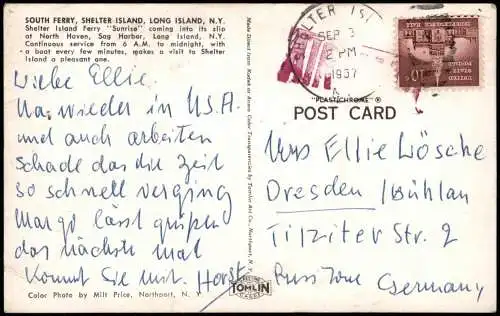 SOUTH FERRY, SHELTER ISLAND, LONG ISLAND, N.Y.
Shelter Island Ferry "Sunrise" coming into its slip
at North Haven, Sag Harbor, Long Island, N.Y.
Continuous service from 6 A.M. to midnight, with
a boat every few minutes, makes a visit to Shelter
Island a pleasant one.
Liebe Ellie.
Na, wieder in U.S.A
und auch arbeiten
Schade das die Zeit
so schnell verging
Margo lässt grüßen
das nächste mal
kommt Sie mit. Horst
Color Photo by Milt Price, Northport, N. Y.
TOMLIN
"PLASTICHROME" ®
POST CARD
SHELTER ISL
SEP 3
2 PM
1957
10¢
Mrs Ellie Lösche
Dresden / Bühlau
Tilziter Str. 2
Russ Zone Germany